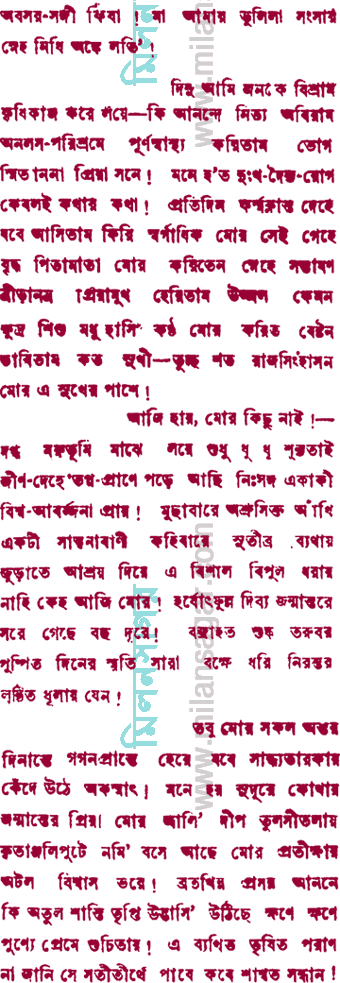 অবসর-সঙ্গী কিবা ! মা আমার তুলিলা সংসার
স্নেহ নিধি অঙ্কে লভি' !
দিনু আমি জনকে বিশ্রাম
কৃষিকাজ করে লয়ে—কি আনন্দে নিত্য অবিরাম
অনলস-পরিশ্রমে পূর্ণস্বাস্থ্য করিতাম ভোগ
স্মিতাননা প্রিয়া সনে ! মনে হ'ত দুঃখ-দৈন্য-রোগ
কেবলই কথার কথা ! প্রতিদিন কর্ম্মক্লান্ত দেহে
যবে আসিতাম ফিরি স্বর্গাধিক মোর সেই গেহে
বৃদ্ধ পিতামাতা মোর করিতেন স্নেহে সম্ভাষণ
ব্রীড়ানত প্রিয়ামুখ হেরিতাম উজ্জ্বল কেমন
ক্ষুদ্র শিশু মধু হাসি' কণ্ঠ মোর করিত বেষ্টন
ভাবিতাম কত সুখী—তুচ্ছ শত রাজসিংহাসন
মোর এ সুখের পাশে !
আজি হায়, মোর কিছু নাই !—
দগ্ধ মরুভূমি মাঝে লয়ে শুধু ধূ ধূ শূন্যতাই
জীর্ণ-দেহে তপ্ত-প্রাণে পড়ে আছি নিঃসঙ্গ একাকী
বিশ্ব-আবর্জ্জনা প্রায় ! মুছাবারে অশ্রুসিক্ত আঁখি
একটী সান্ত্বনাবাণী কহিবারে সুতীব্র ব্যথায়
জুড়াতে আশ্রয় দিয়ে এ বিশাল বিপুল ধরায়
নাহি কেহ আজি মোর ! হর্ষোৎফুল্ল দিব্য জন্মান্তরে
সরে গেছে বহু দূরে ! বজ্রাহত শুষ্ক তরুবর
পুষ্পিত দিনের স্মৃতি সারা বক্ষে ধরি নিরন্তর
লুণ্ঠিত ধূলার যেন !
তবু মোর সকল অন্তর
দিনান্তে গগনপ্রান্তে হেরে যবে সান্ধ্যতারকার
কেঁদে উঠে অকস্মাৎ ! মনে হয় সুদূরে কোথায়
জন্মান্তের প্রিয়া মোর জ্বালি' দীপ তুলসীতলায়
কৃতাঞ্জলিপুটে নমি' বসে আছে মোর প্রতীক্ষায়
অটল বিশ্বাস ভরে ! ব্রতখিন্ন প্রসন্ন আননে
কি অতুল শান্তি তৃপ্তি উদ্ভাসি' উঠিছে ক্ষণে ক্ষণে
পুণ্যে প্রেমে শুচিতায় ! এ ব্যথিত তৃষিত পরাণ
না জানি সে সতীতীর্থে পাবে কবে শাশ্বত সন্ধান !
মিলনসাগর
www.milansagar.com
মিলন
www.milan